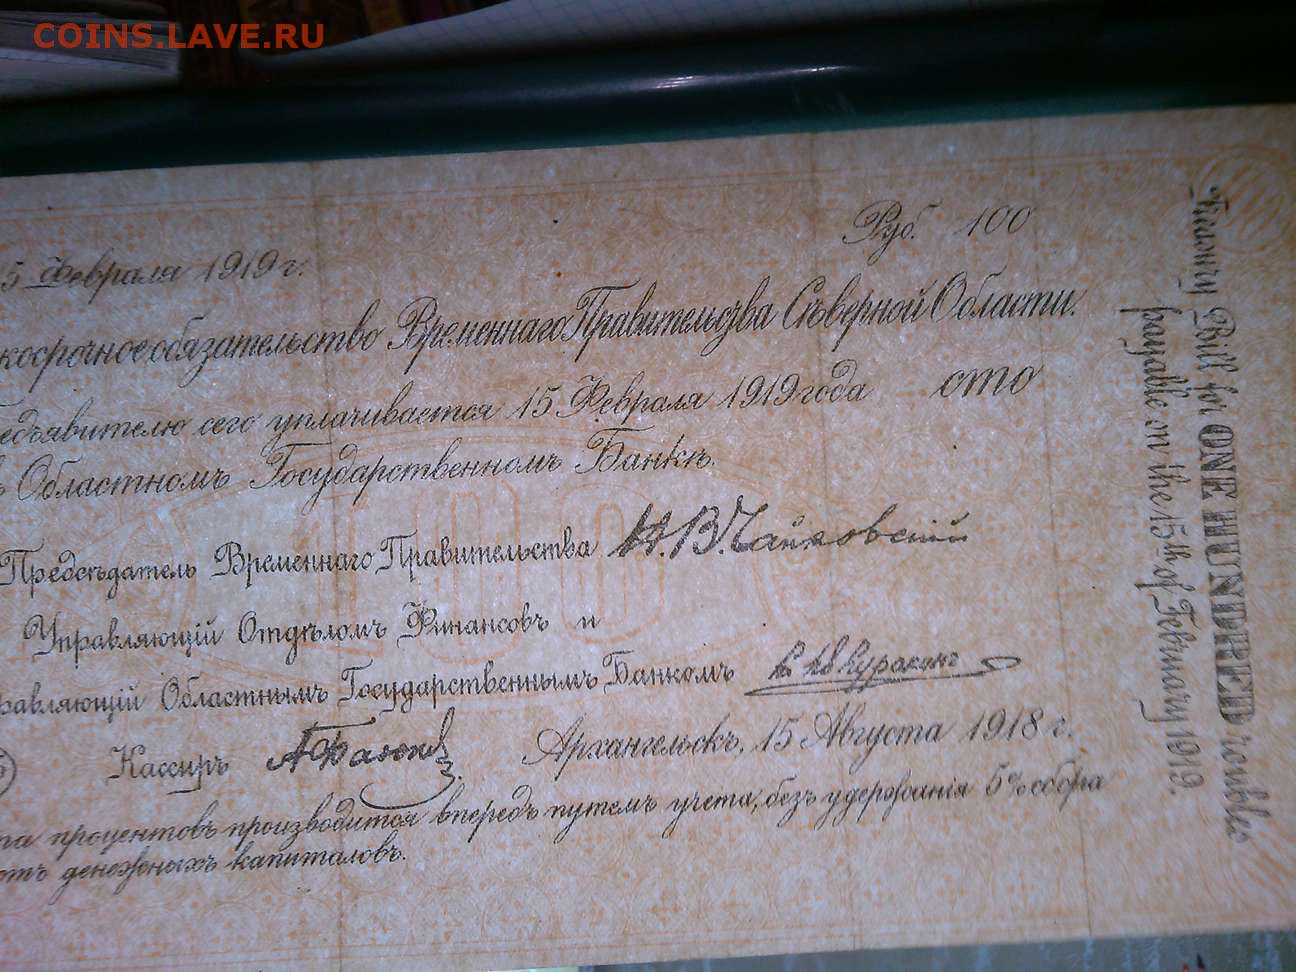 COINS.LAVE.RU
5 Февраля 1919 г.
Руб. 100
косрочное обязательство Временнаго Правительства Съверной Области.
едъявителю сего уплачивается 15 Февраля 1919 года сто
Областномъ Государственномъ Банкъ.
Предсъдатель Временнаго Правительства Н.В.Чайковскій
Управляющій Отдъломъ Финансовъ и
равляющій Областнымъ Государственнымъ Банкомъ
Кассиръ
Архангельскъ, 15 Августа 1918 г.
та процентовъ производится впередъ путемъ учета, безъ удержанія 5% сбора
отъ денежныхъ капиталовъ.
Treasury Bill for ONE HUNDRED roubles
payable on the 15th of February 1919.